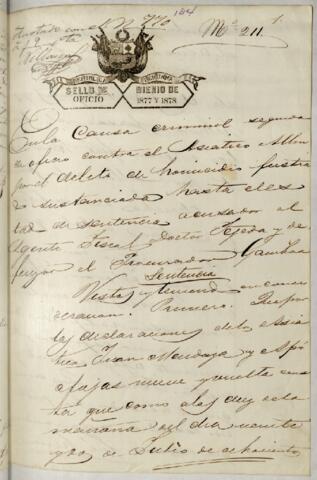 N 770
184
Mº 211
1
REPUBLICA PERUANA
SELLO DE OFICIO
BIENIO DE 1877 Y 1878
En la Causa criminal seguida
de oficio contra el Asiatico
por el delito de homicidio frustra
do sustanciada hasta el es
tado de sentencia acusador el
Agente Fiscal Doctor Tejeda y de
fensor el Procurador Gamboa
Sentencia
Vistos y teniendo en consi
deracion. Primero. Que por
las declaraciones de los Asia
ticos Juan Mendoza y
a fojas nueve y vuelta cons
ta que como a las dies de la
mañana del dia veinte
y dos de Julio de ochocientos